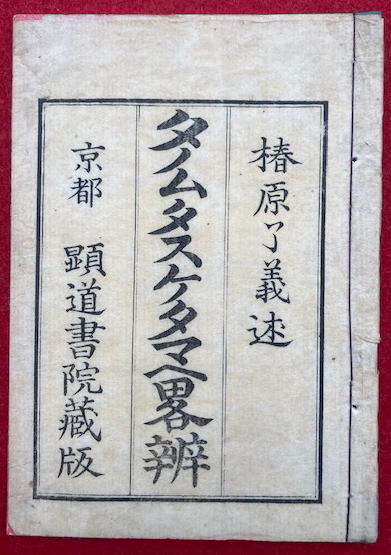 椿原了義述
タノムタスケタマヘ畧辨
京都 顕道書院藏版